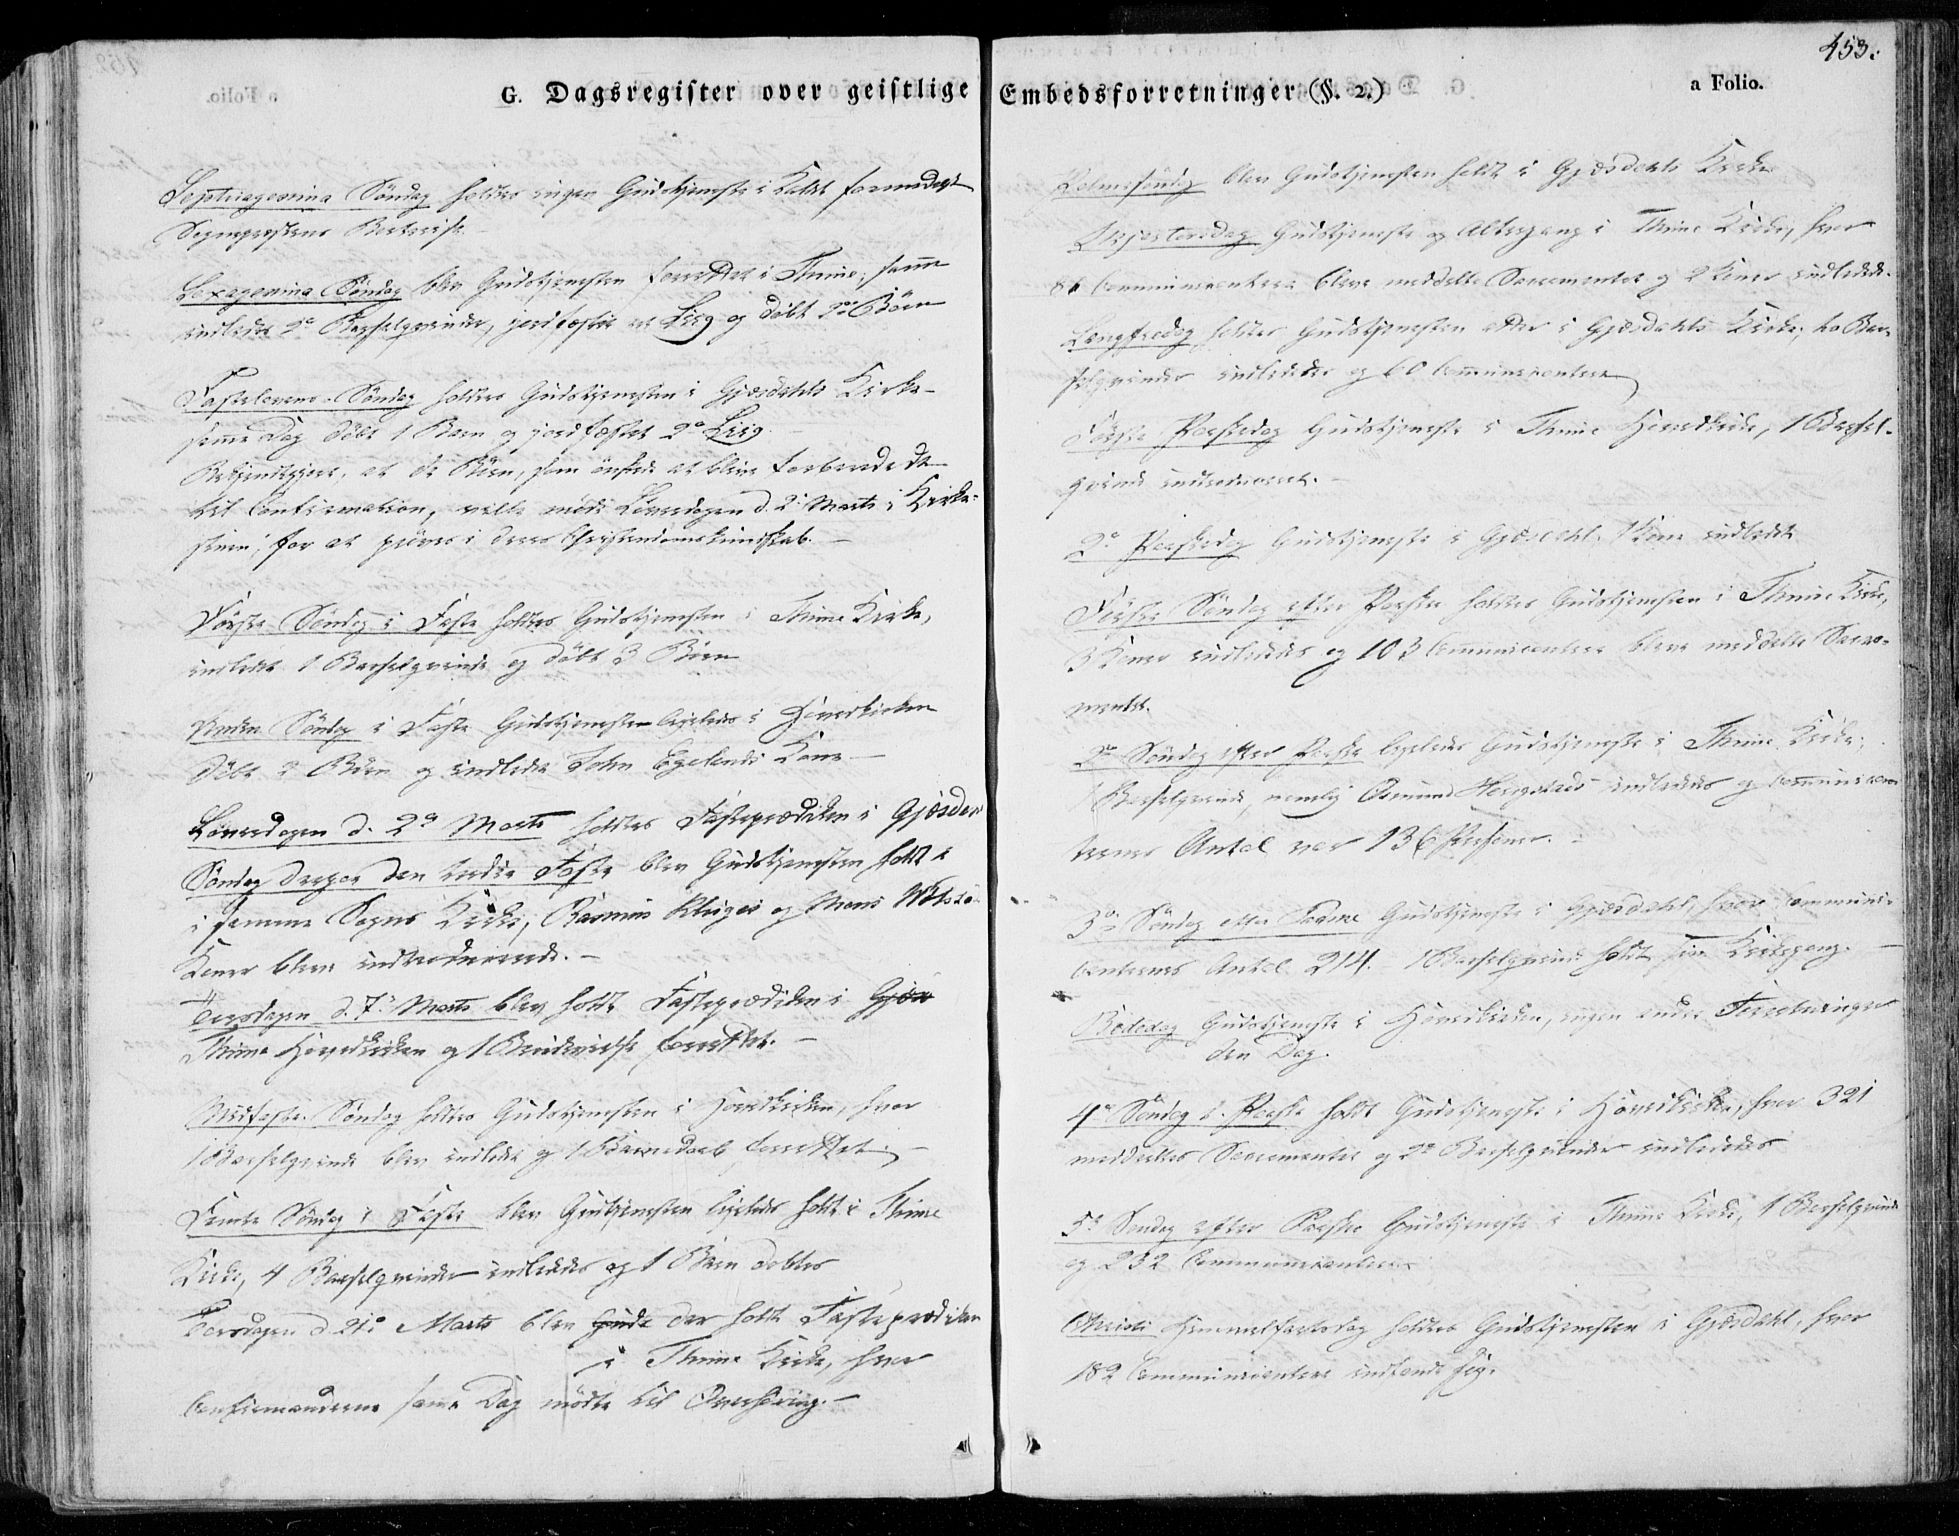 453.
G. Dagsregister over geistlige Embedsforretninger (§. 2.)
a Folio.
Septuagesima Søndag holdtes ingen Gudstjeneste i Kaldet formedelst
Sognepræstens Bortreise.
Sexagesima Søndag blev Gudstjenesten forrettet i Thime; samme
indledet 2de Barselqvinder, jordfæstet et Liig og døbt 2de Börn
Fastelavns-Søndag holdtes Gudstjenesten i Gjæsdahls Kirke
samme Dag døbt 1 Barn og jordfæstet 2de Liig.
Bekjendtgjort, at de Börn, som ønskede at blive forberedede
til Confirmation, ville møde Løverdagen d. 2den Marts i Kirke-
stuen, for at prøves i deres Christendomskundskab. —
Første Søndag i Faste holdtes Gudstjenesten i Thime Kirke,
indledt 1 Barselqvinde og døbt 3 Börn
Anden Søndag i Faste Gudstjenesten ligeledes i Hovedkirken
døbt 2 Börn og indledet John Egelands Kone —
Løverdagen d. 2den Marts holdtes Fasteprædiken i Gjæsdal
Søndag derpaa den tredie Faste blev Gudstjenesten holdt
i samme Sogns Kirke; Rasmus og Mons
Koner bleve introducerede. —
Torsdagen d. 7de Marts blev holdt Fasteprædiken i Gjæs
Thime Hovedkirken og 1 Brudevielse forrettet. —
Midfaste-Søndag holdtes Gudstjenesten i Hovedkirken, hvor
1 Barselqvinde blev indledet og 1 Barnedaab forrettet. —
Femte Søndag i Faste blev Gudstjenesten ligeledes holdt i Thime
Kirke, 4 Barselqvinder indlededes og 1 Barn døbtes
Torsdagen d. 21de Marts blev Guds der holdt Fasteprædiken
i Thime Kirke, hvor
Confirmanderne samme Dag mødte til Overhøring. —
Palmesøndag blev Gudstjenesten holdt i Gjæsdahls Kirke
Skjærtorsdag Gudstjeneste og Altergang i Thime Kirke, hvor
86 Communicantere bleve meddelte Sacramentet og 2 Koner indledede.
Langfredag holdtes Gudstjenesten atter i Gjæsdahls Kirke, to Bar-
selqvinder indledede og 60 Communicantere
Første Paaskedag Gudstjeneste i Thime Hovedkirke, 1 Barsel-
qvinde introduceret. —
2den Paaskedag Gudstjeneste i Gjæsdahl. 1 Kone indledet
Første Søndag efter Paaske holdtes Gudstjenesten i Thime Kirke,
3 Koner indledede og 103 Communicantere bleve meddelte Sacra-
mentet.
2den Søndag efter Paaske ligeledes Gudstjeneste i Thime Kirke;
1 Barselqvinde, nemlig Osmund Hognstads indledet og Communican-
ternes Antal var 136 Personer. —
3die Søndag efter Paaske Gudstjeneste i Gjæsdahl, hvor Communi-
canternes Antal 214. — 1 Barselqvinde holdt sin Kirkegang. —
Bededag Gudstjeneste i Hovedkirken, ingen anden Forretninger
den Dag.
4de Søndag e. Paaske holdt Gudstjeneste i Hovedkirken, hvor 321
meddeltes Sacramentet og 2de Barselqvinder indledede
5te Søndag efter Paaske Gudstjeneste i Thime Kirke, 1 Barselqvinde
og 232 Communicantere
Christi Himmelfartsdag holdtes Gudstjenesten i Gjæsdahl, hvor
182 Communicantere indfandt sig.